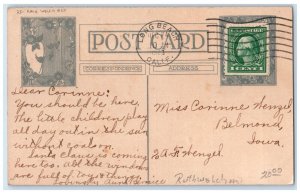 LONG BEACH
CALIF.
POST CARD
CORRESPONDENCE
ADDRESS
1 CENT 1
Dear Corinne:
You should be here,
The little children play
all day out in the sun
without coats on.
Santa Claus is coming
here too. All the windows
are full of toys & things
Lovingly Aunt Bernice
Miss Corinne Wenzel,
Belmond,
Iowa.
% A. F. Wenzel.
20.00